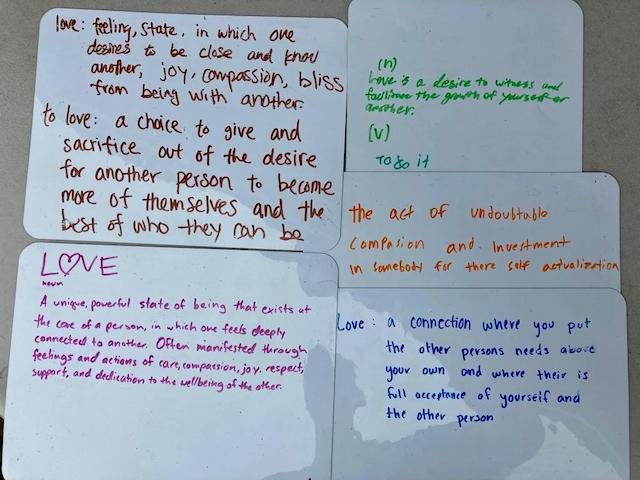 love: feeling, state, in which one
desires to be close and know
another, joy, compassion, bliss
from being with another.
to love: a choice to give and
sacrifice out of the desire
for another person to become
more of themselves and the
best of who they can be
(n)
Love is a desire to witness and
the growth of yourself or
another.
(v)
To do it
the act of undoubtable
Compasion and Investment
in somebody for there self actualization
LOVE
noun
A unique, powerful state of being that exists at
the core of a person, in which one feels deeply
connected to another. Often manifested through
feelings and actions of care, compassion, joy, respect,
support, and dedication to the wellbeing of the other.
Love: a connection where you put
the other persons needs above
your own and where their is
full acceptance of yourself and
the other person